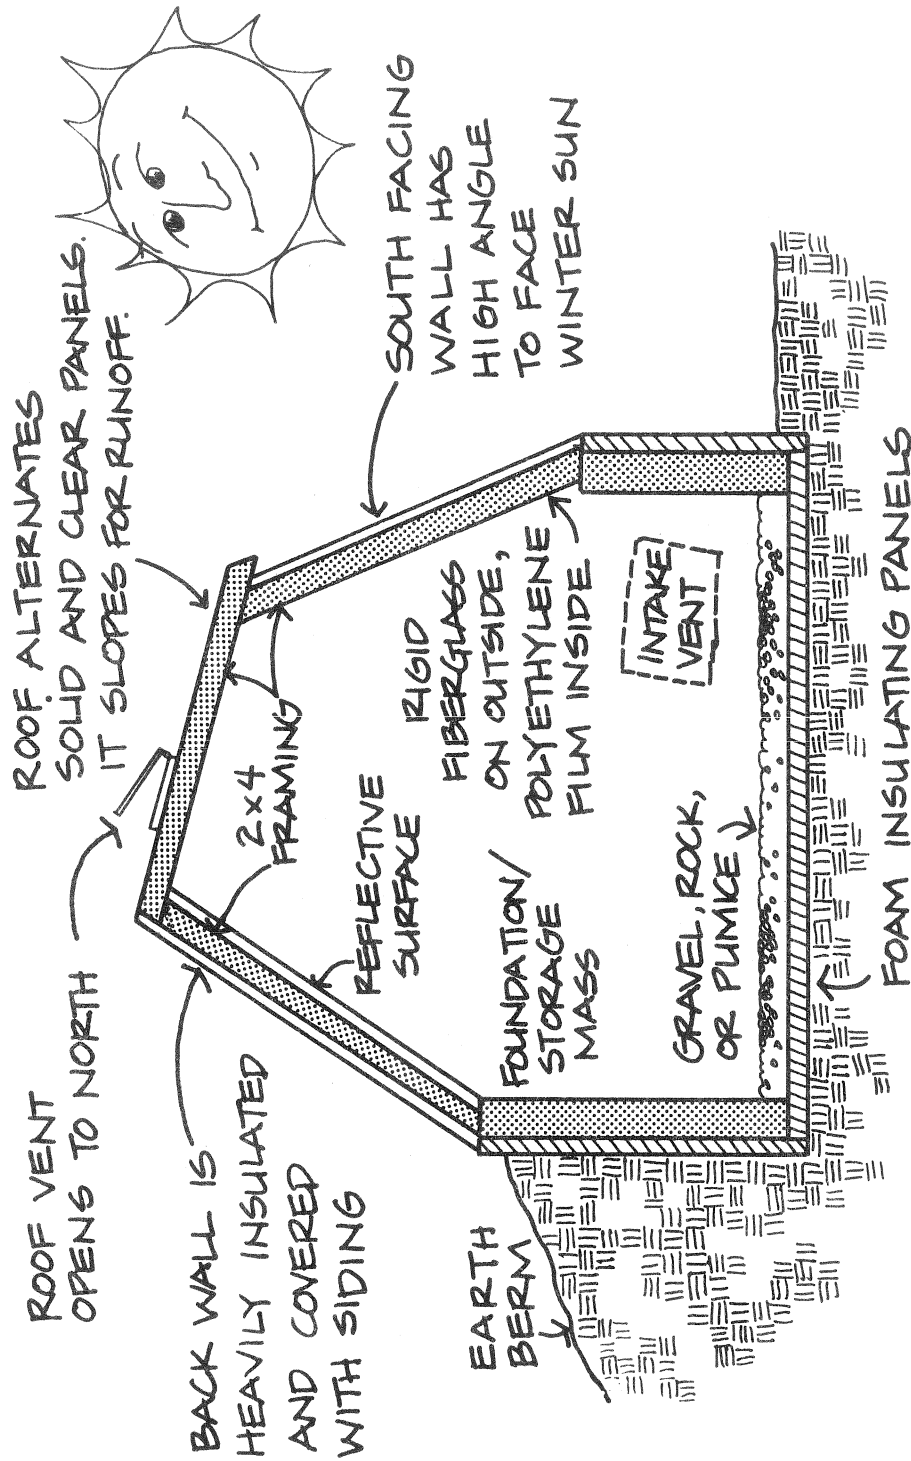 ROOF VENT
OPENS TO NORTH
ROOF ALTERNATES
SOLID AND CLEAR PANELS.
IT SLOPES FOR RUNOFF.
BACK WALL IS
HEAVILY INSULATED
AND COVERED
WITH SIDING
2x4
FRAMING
REFLECTIVE
SURFACE
SOUTH FACING
WALL HAS
HIGH ANGLE
TO FACE
WINTER SUN
RIGID
FIBERGLASS
ON OUTSIDE,
POLYETHYLENE
FILM INSIDE
EARTH
BERM
FOUNDATION/
STORAGE
MASS
INTAKE
VENT
GRAVEL, ROCK,
OR PUMICE
FOAM INSULATING PANELS